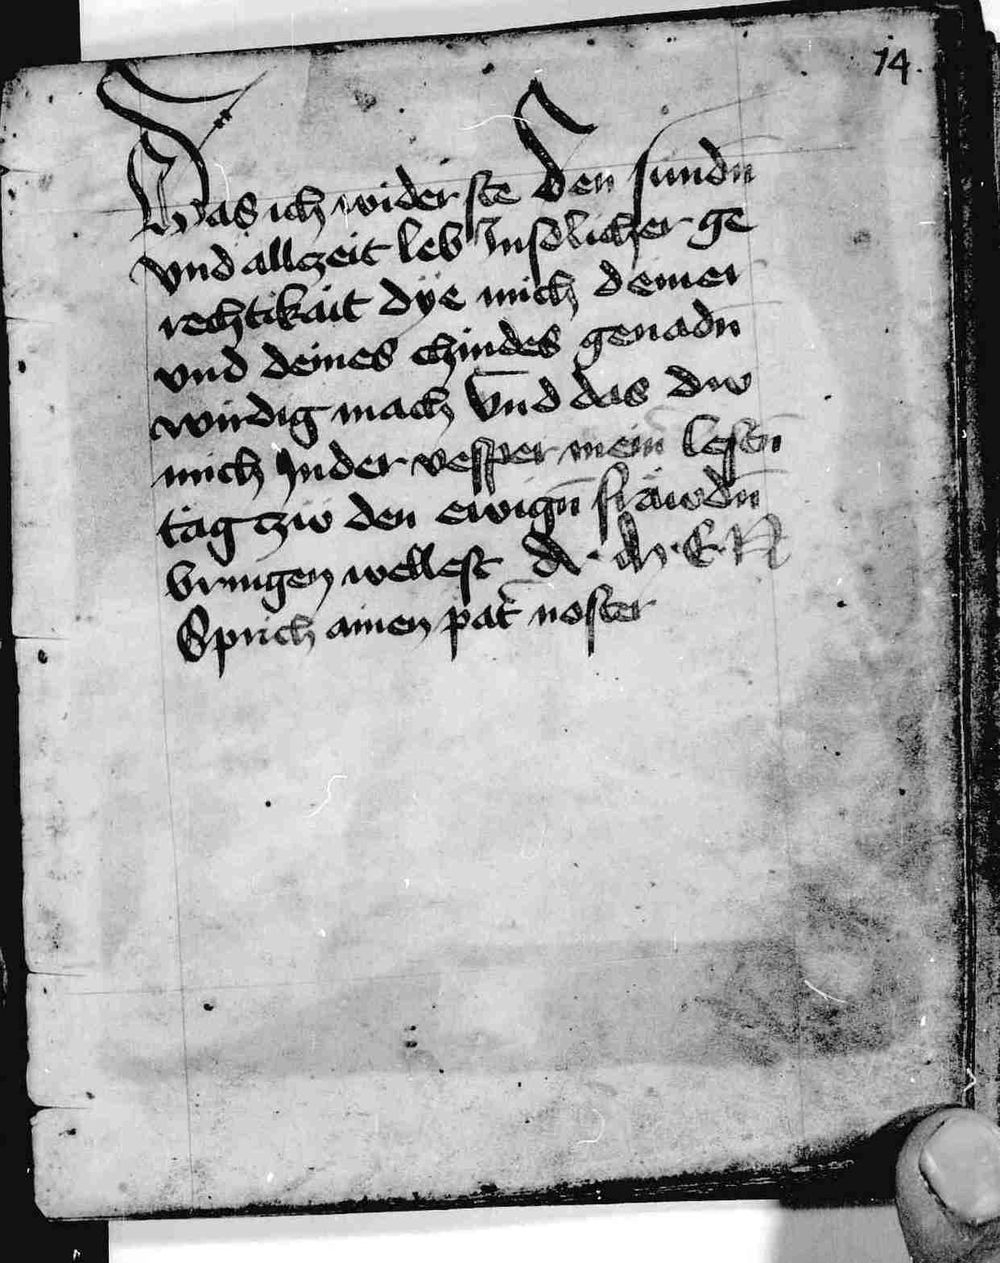 14.
Das ich widerste den sundn̄
vnd allczeit leb Jnsolicher ge
rechtikait dye mich deiner
vnd deines chindes genadn̄
wirdig mach vnd das dw
mich Jnder vesper mein̄ lesten̄
täg czw den ewign̄ fräwdn̄
bringen wellest A · M · E · N
Sprich ainen pat̄ noster